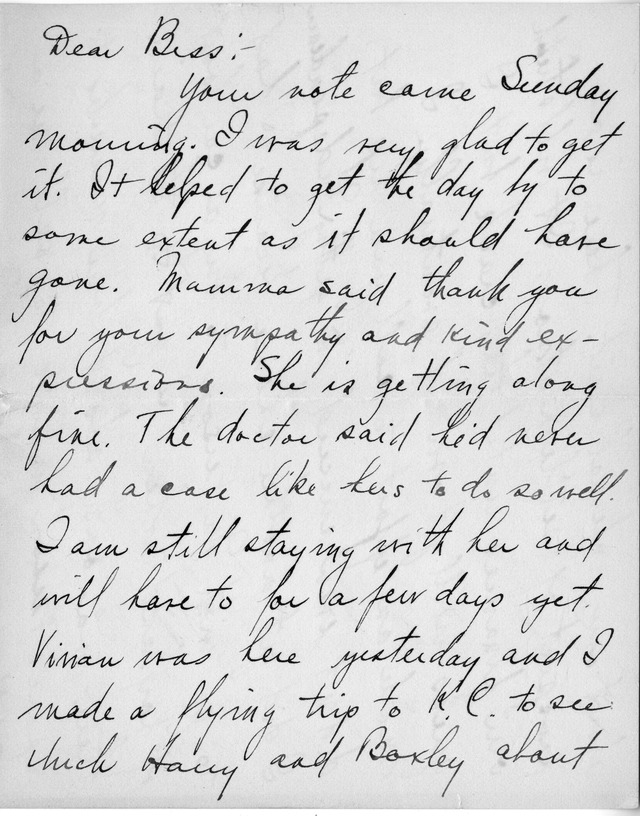 Dear Bess:-
Your note came Sunday
morning. I was very glad to get
it. It helped to get the day by to
some extent as it should have
gone. Mamma said thank you
for your sympathy and kind ex-
pressions. She is getting along
fine. The doctor said he'd never
had a case like hers to do so well.
I am still staying with her and
will have to for a few days yet.
Vivian was here yesterday and I
made a flying trip to K.C. to see
Uncle Harry and Boxley about